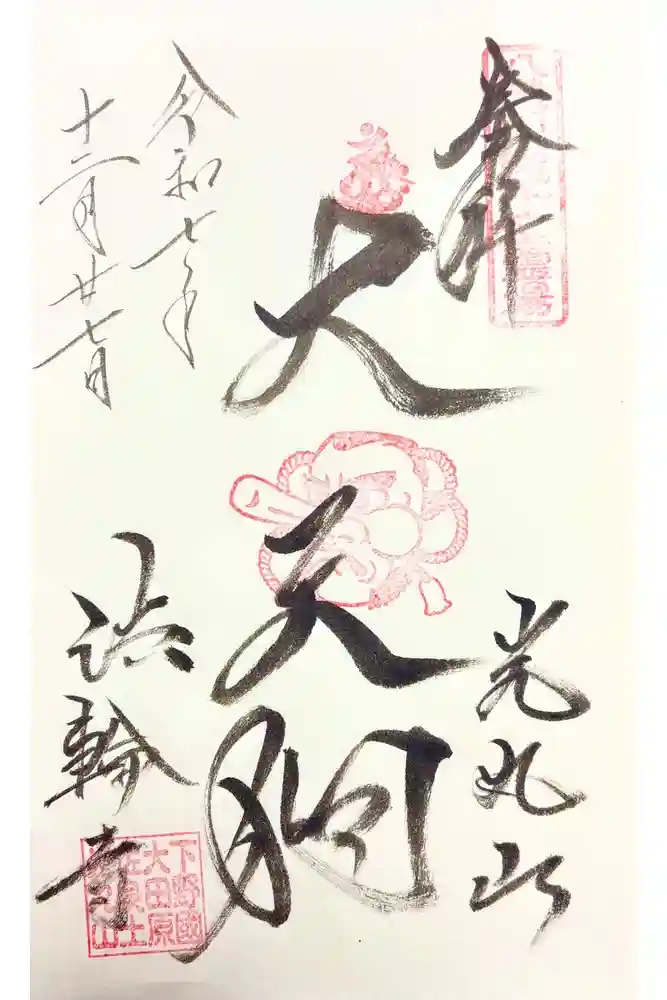 奉拝
光丸山
大天狗
令和七年
十二月廿七日
法輪寺
下野國
大田原
佐良土
光丸山